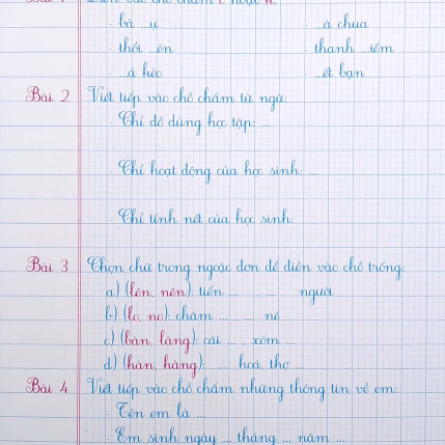 bà ...ụ ...à chua
thổi ...èn thanh ...iếm
...à kẻo ...ết bạn
Bài 2 Viết tiếp vào chỗ chấm từ ngữ:
- Chỉ đồ dùng học tập: ...
- Chỉ hoạt động của học sinh: ...
- Chỉ tính nết của học sinh:
Bài 3 Chọn chữ trong ngoặc đơn để điền vào chỗ trống:
a) (lên, nên): tiến ... ... người
b) (lo, no): chăm ... ... nê
c) (bản, làng): cái ... , xóm ...
d) (hàn, hàng): ... hoá, thợ ...
Bài 4 Viết tiếp vào chỗ chấm những thông tin về em:
- Tên em là ...
- Em sinh ngày ... tháng ... năm ...